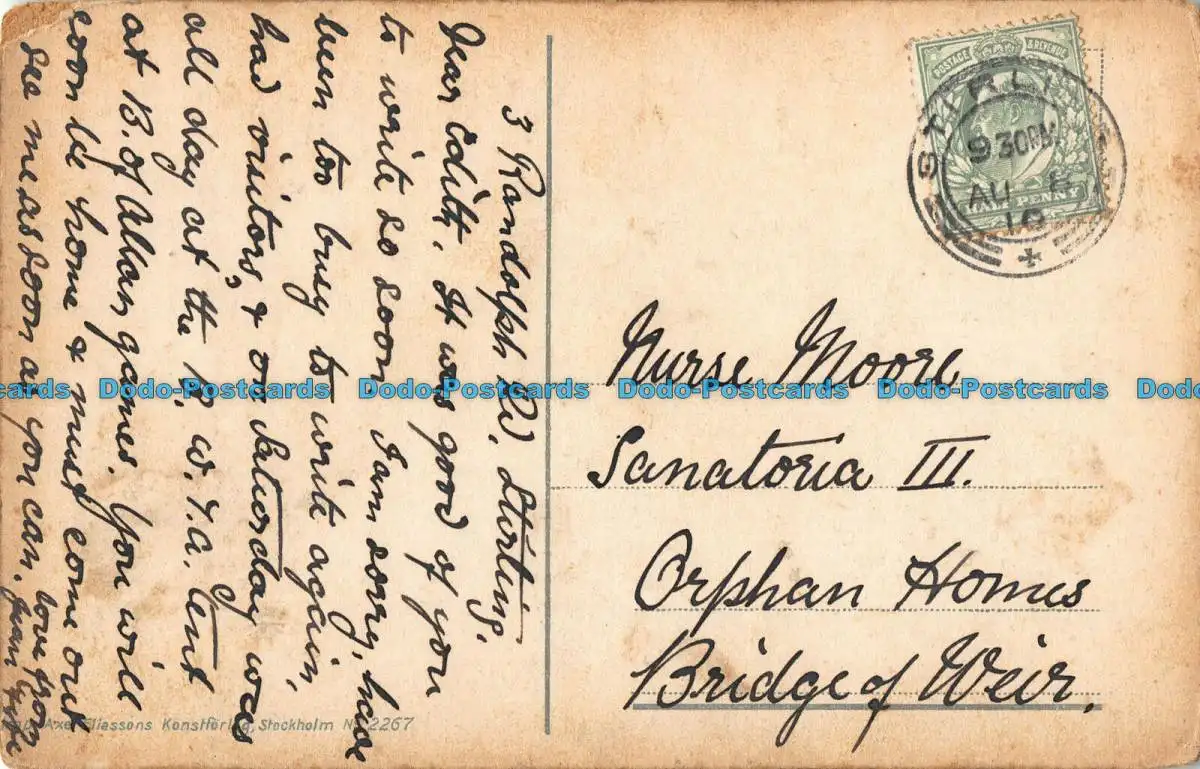 3 Randolph Rd. Stirling.
Dear Edith. It was good of you
to write so soon I am sorry, have
been too busy to write again,
had visitors, & on Saturday was
all day at the B. W. T. A. tent
at B. of Allan games. You will
soon be home & must come out
see me as soon as you can.
love from
POSTAGE & REVENUE
PENNY
STIRLING
9 30PM
AU
10
Nurse Moore
Sanatoria III.
Orphan Homes
Bridge of Weir.
Axel Eliassons Konstförlag, Stockholm No 2267
Dodo-Postcards Dodo-Postcards Dodo-Postcards Dodo-Postcards